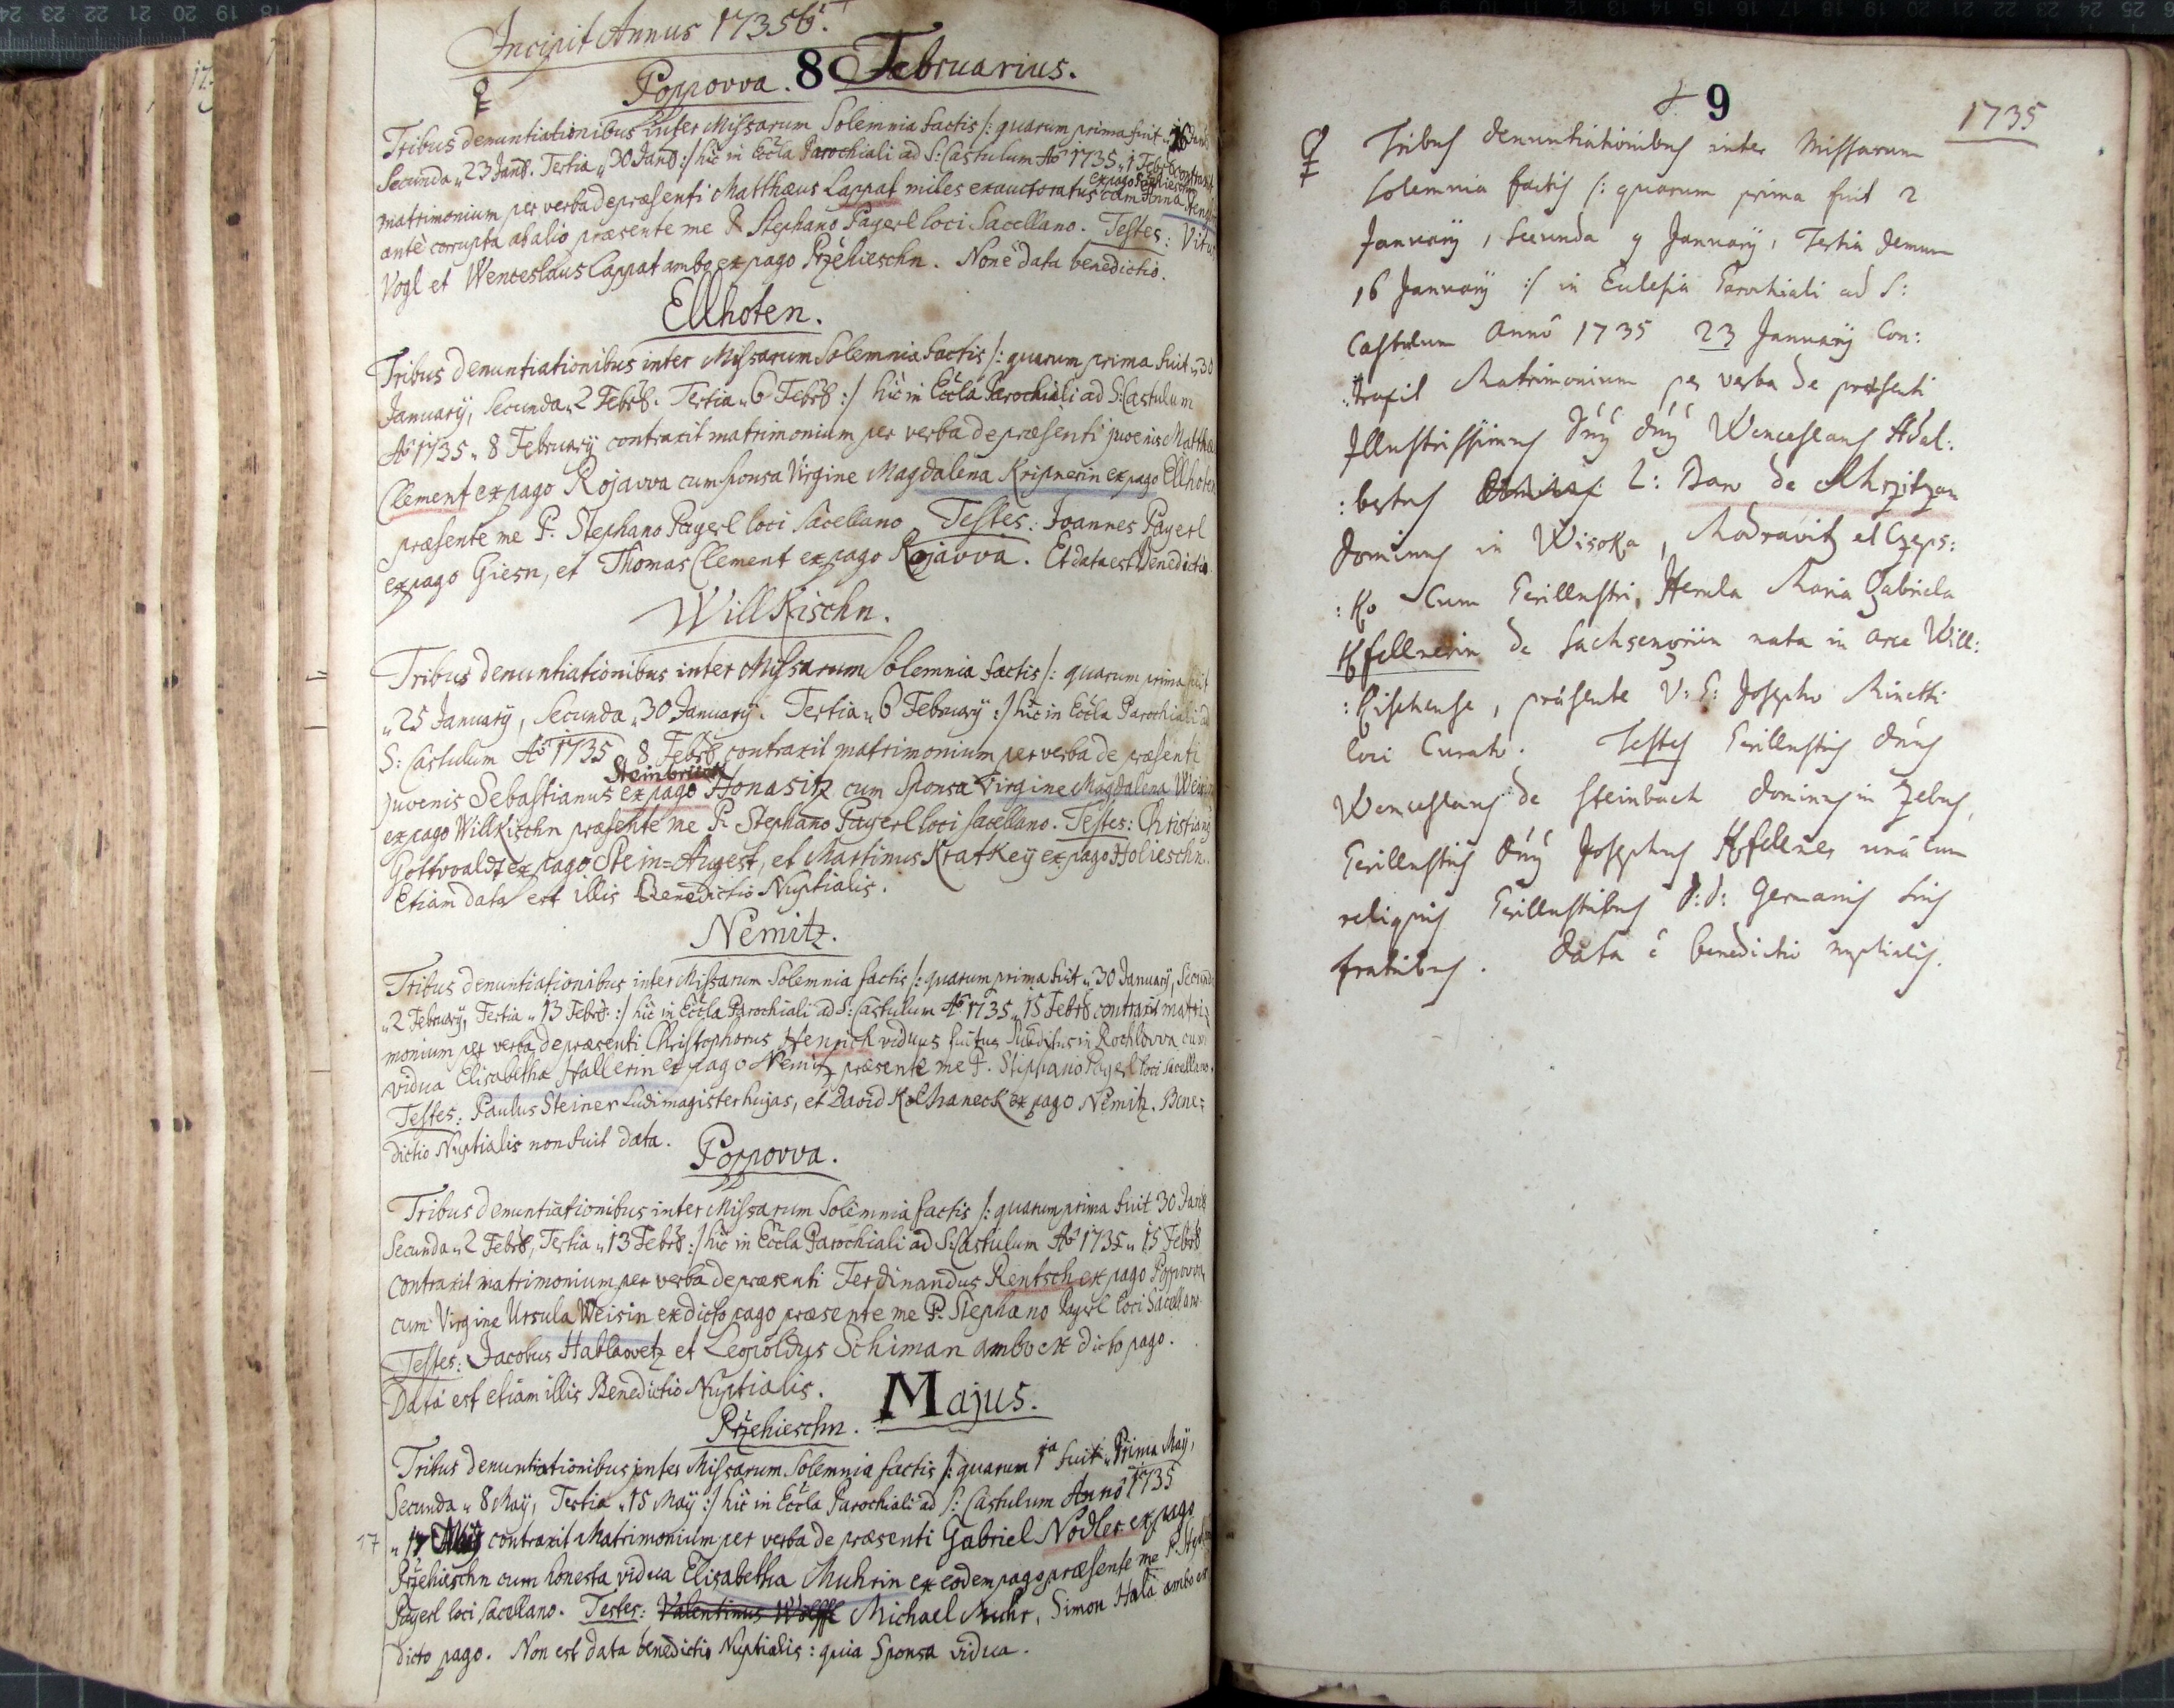 Incipit Annus 1735tg.
Poppovva. 8 Februarius.
Tribus denuntiationibus inter Missarum Solemnia factis /: quarum prima fuit 16 Janu
Secunda „ 23 Janu. Tertia „ 30 Janu :/ hic in Eccla Parochiali ad S: Castulum Ao 1735 „ 1 Febr contraxit
ex pago Przehieschn
matrimonium per verba de præsenti Matthæus Lappat miles exauctoratus cum Anna
antè corrupta ab alio præsente me P. Stephano Payerl loci Sacellano. Testes: Vitus
Vogl et Wenceslaus Lappat ambo ex pago Przehieschn. Non e data benedictio.
Ellhoten.
Tribus denuntiationibus inter Missarum Solemnia factis /: quarum prima fuit „ 30
January, Secunda „ 2 Febr. Tertia „ 6 Febr :/ hic in Eccla Parochiali ad S: Castulum
Ao 1735 „ 8 February contraxit matrimonium per verba de præsenti juvenis Matthæ
Clement ex pago Rojavva cum sponsa Virgine Magdalena Kripnerin ex pago Ellhoten
præsente me P. Stephano Payerl loci Sacellano. Testes: Joannes Payerl
ex pago Giesn, et Thomas Clement ex pago Rojavva. Et data est Benedictio.
Willkischn.
Tribus denuntiationibus inter Missarum Solemnia factis /: quarum prima fuit
„ 25 January, Secunda „ 30 January. Tertia „ 6 February :/ hic in Eccla Parochiali ad
S: Castulum Ao 1735 „ 8 Febr contraxit matrimonium per verba de præsenti
Steinbrück
juvenis Sebastianus ex pago Honasitz cum Sponsa Virgine Magdalena
ex pago Willkischn præsente me P. Stephano Payerl loci Sacellano. Testes: Christianus
Gottvvaldt ex pago Stein=Augest, et Martinus Kratkey ex pago Holieschn.
Etiam data est illis Benedictio Nuptialis.
Nemitz.
Tribus denuntiationibus inter Missarum Solemnia factis /: quarum prima fuit „ 30 January, Secunda
„ 2 February, Tertia „ 13 Febr. :/ hic in Eccla Parochiali ad S: Castulum Ao 1735 „ 15 Febr contraxit matri=
monium per verba de præsenti Christophorus Henrich viduus Subditus in Rochlovva cum
vidua Elisabetha Hallerin ex pago Nemitz præsente me P. Stephano Payerl loci Sacellano.
Testes: Paulus Steiner Ludimagister hujas, et David Kolhaneck ex pago Nemitz. Bene=
dictio Nuptialis non fuit data.
Poppovva.
Tribus denuntiationibus inter Missarum Solemnia factis /: quarum prima fuit 30 Janu
Secunda „ 2 Febr, Tertia „ 13 Febr :/ hic in Eccla Parochiali ad S: Castulum Ao 1735 „ 15 Febr
contraxit matrimonium per verba de præsenti Ferdinandus Rentsch ex pago Poppovva
cum Virgine Ursula Weisin ex dicto pago præsente me P. Stephano Payerl loci Sacellano.
Testes: Jacobus Hablavvetz et Leopoldus Schiman ambo ex dicto pago.
Data est etiam illis Benedictio Nuptialis.
Majus.
Przehieschn.
Tribus denuntiationibus inter Missarum Solemnia factis /: quarum 1a fuit „ Prima May,
Secunda „ 8 May, Tertia „ 15 May :/ hic in Eccla Parochiali ad S: Castulum Anno 1735
17 „ 17 May contraxit Matrimonium per verba de præsenti Gabriel Nodler ex pago
Przehieschn cum honesta vidua Elisabetha Muhrin ex eodem pago præsente me P. Steph
Payerl loci Sacellano. Testes: Valentinus Wolffl Michael Muhr, Simon Hala ambo ex
dicto pago. Non est data benedictio Nuptialis: quia Sponsa vidua.
9
1735
Tribus denuntiationibus inter Missarum
solemnia factis /: quarum prima fuit 2
January, Secunda 9 January, Tertia demum
16 January :/ in Eclesia Parochiali ad S:
Castulum anno 1735 23 January Con:
:traxit Matrimonium per verba de præsenti
Illustrissimus Dnus Dnus Wenceslaus Adal:
:bertus L: Baro de
dominus in Wisoka, Modravitz et Czeps:
:ko Cum Perillustri, Herula Maria Gabriela
Hfellnerin de Sachsengrün nata in arce Will:
:kischense, præsente V: P: Josepho Minetti
loci Curato. Testes Perillustris Dnus
Wenceslaus de Steinbach dominus in Zebus,
Perillustris Dnus Josephus Hfellner unà cum
reliquis Perillustribus D: D: Germanis suis
fratribus. Data e benedictio nuptialis.